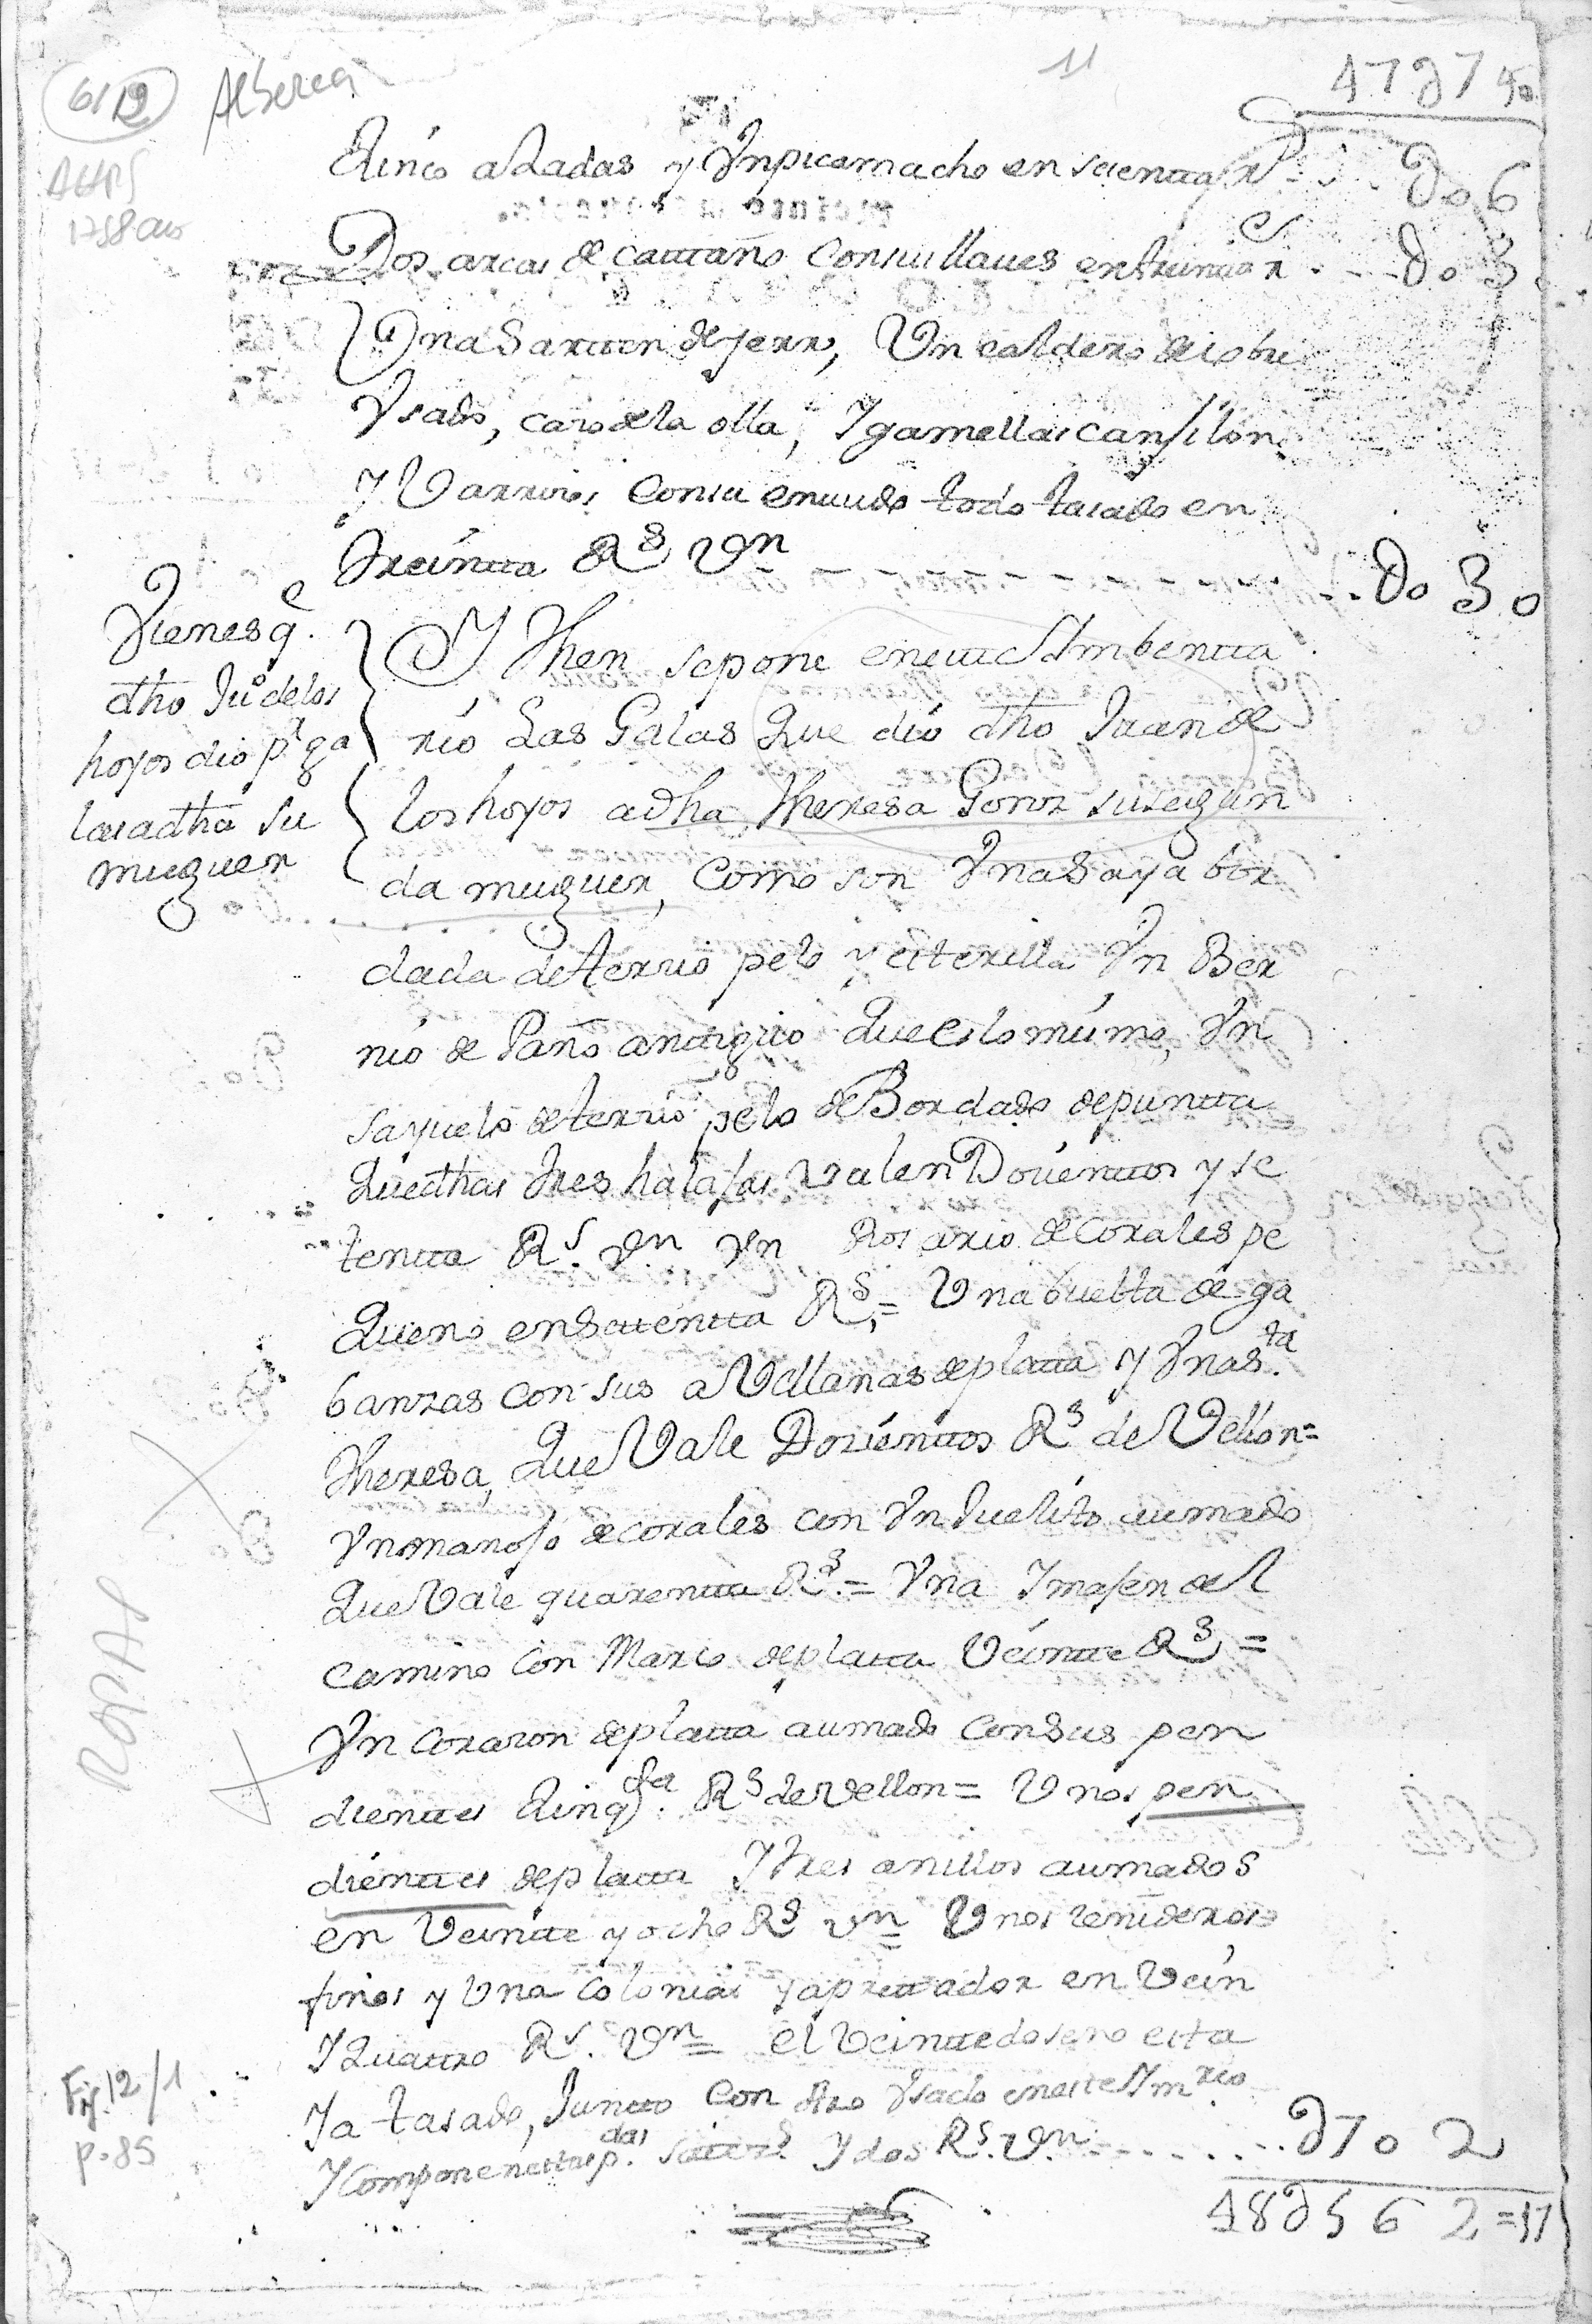 6/12 Alberca 11 17U7 40
AHPS
1758 año
Zinco azadas y Vn picamacho en sesentta Rs U06
Dos arcas de casttaño con sus llaues en treinta Rs U03
Vna Sartten de yerro, Vn caldero de cobre
Vsado, cazo de la olla, Y gamellas canjilon
Y Varrinos con su enuudo todo tasado en
treíntta Rs Vn U030
Vienes q.e
dho Ju.o delos
hoyos dio p.a ga
las a dha su
muguer
Y Then se pone en estte Ymbentta
río Las Galas Que dío dho Juan de
los hoyos a dha Theresa Gonz su segun
da muguer, como son Vna Saya bor
dada de terzio pelo y esterilla Vn Ber
nío de Paño anttiguo Que es lo mismo, Vn
sayuelo de terzio pelo de Bordado de puntta
Que dhas tres halajas valen Dozienttos y se
tentta Rs. Vn Vn Rosario de corales pe
Queño en Settentta Rs = Vna buelta de ga
banzas con sus aVellanas de platta Y Vna S.ta
Theresa, Que Vale Dozienttos Rs de Vellon=
Vn manojo de corales con Vn Juelito aumado
Que Vale quarentta Rs = Vna Ymajen del
camino con Marco de platta Veintte Rs =
Vn corazon de platta aumado con sus pen
dienttes Zinq.ta Rs de vellon = Vnos pen
dienttes de platta Y tres anillos aumados
en Veintte y ocho Rs vn = Vnos zenideros
finos y Vna colonias y aprettador en Vein
Y Quattro Rs. Vn = el Veinttedoseno esta
Ya tasado, Juntto con otro Vsado en este Ym.rio
Y componen esttas p.das settez.s Y dos Rs. Vn U702
18U562=17
ROPAS
Fig. 12/1
p. 85